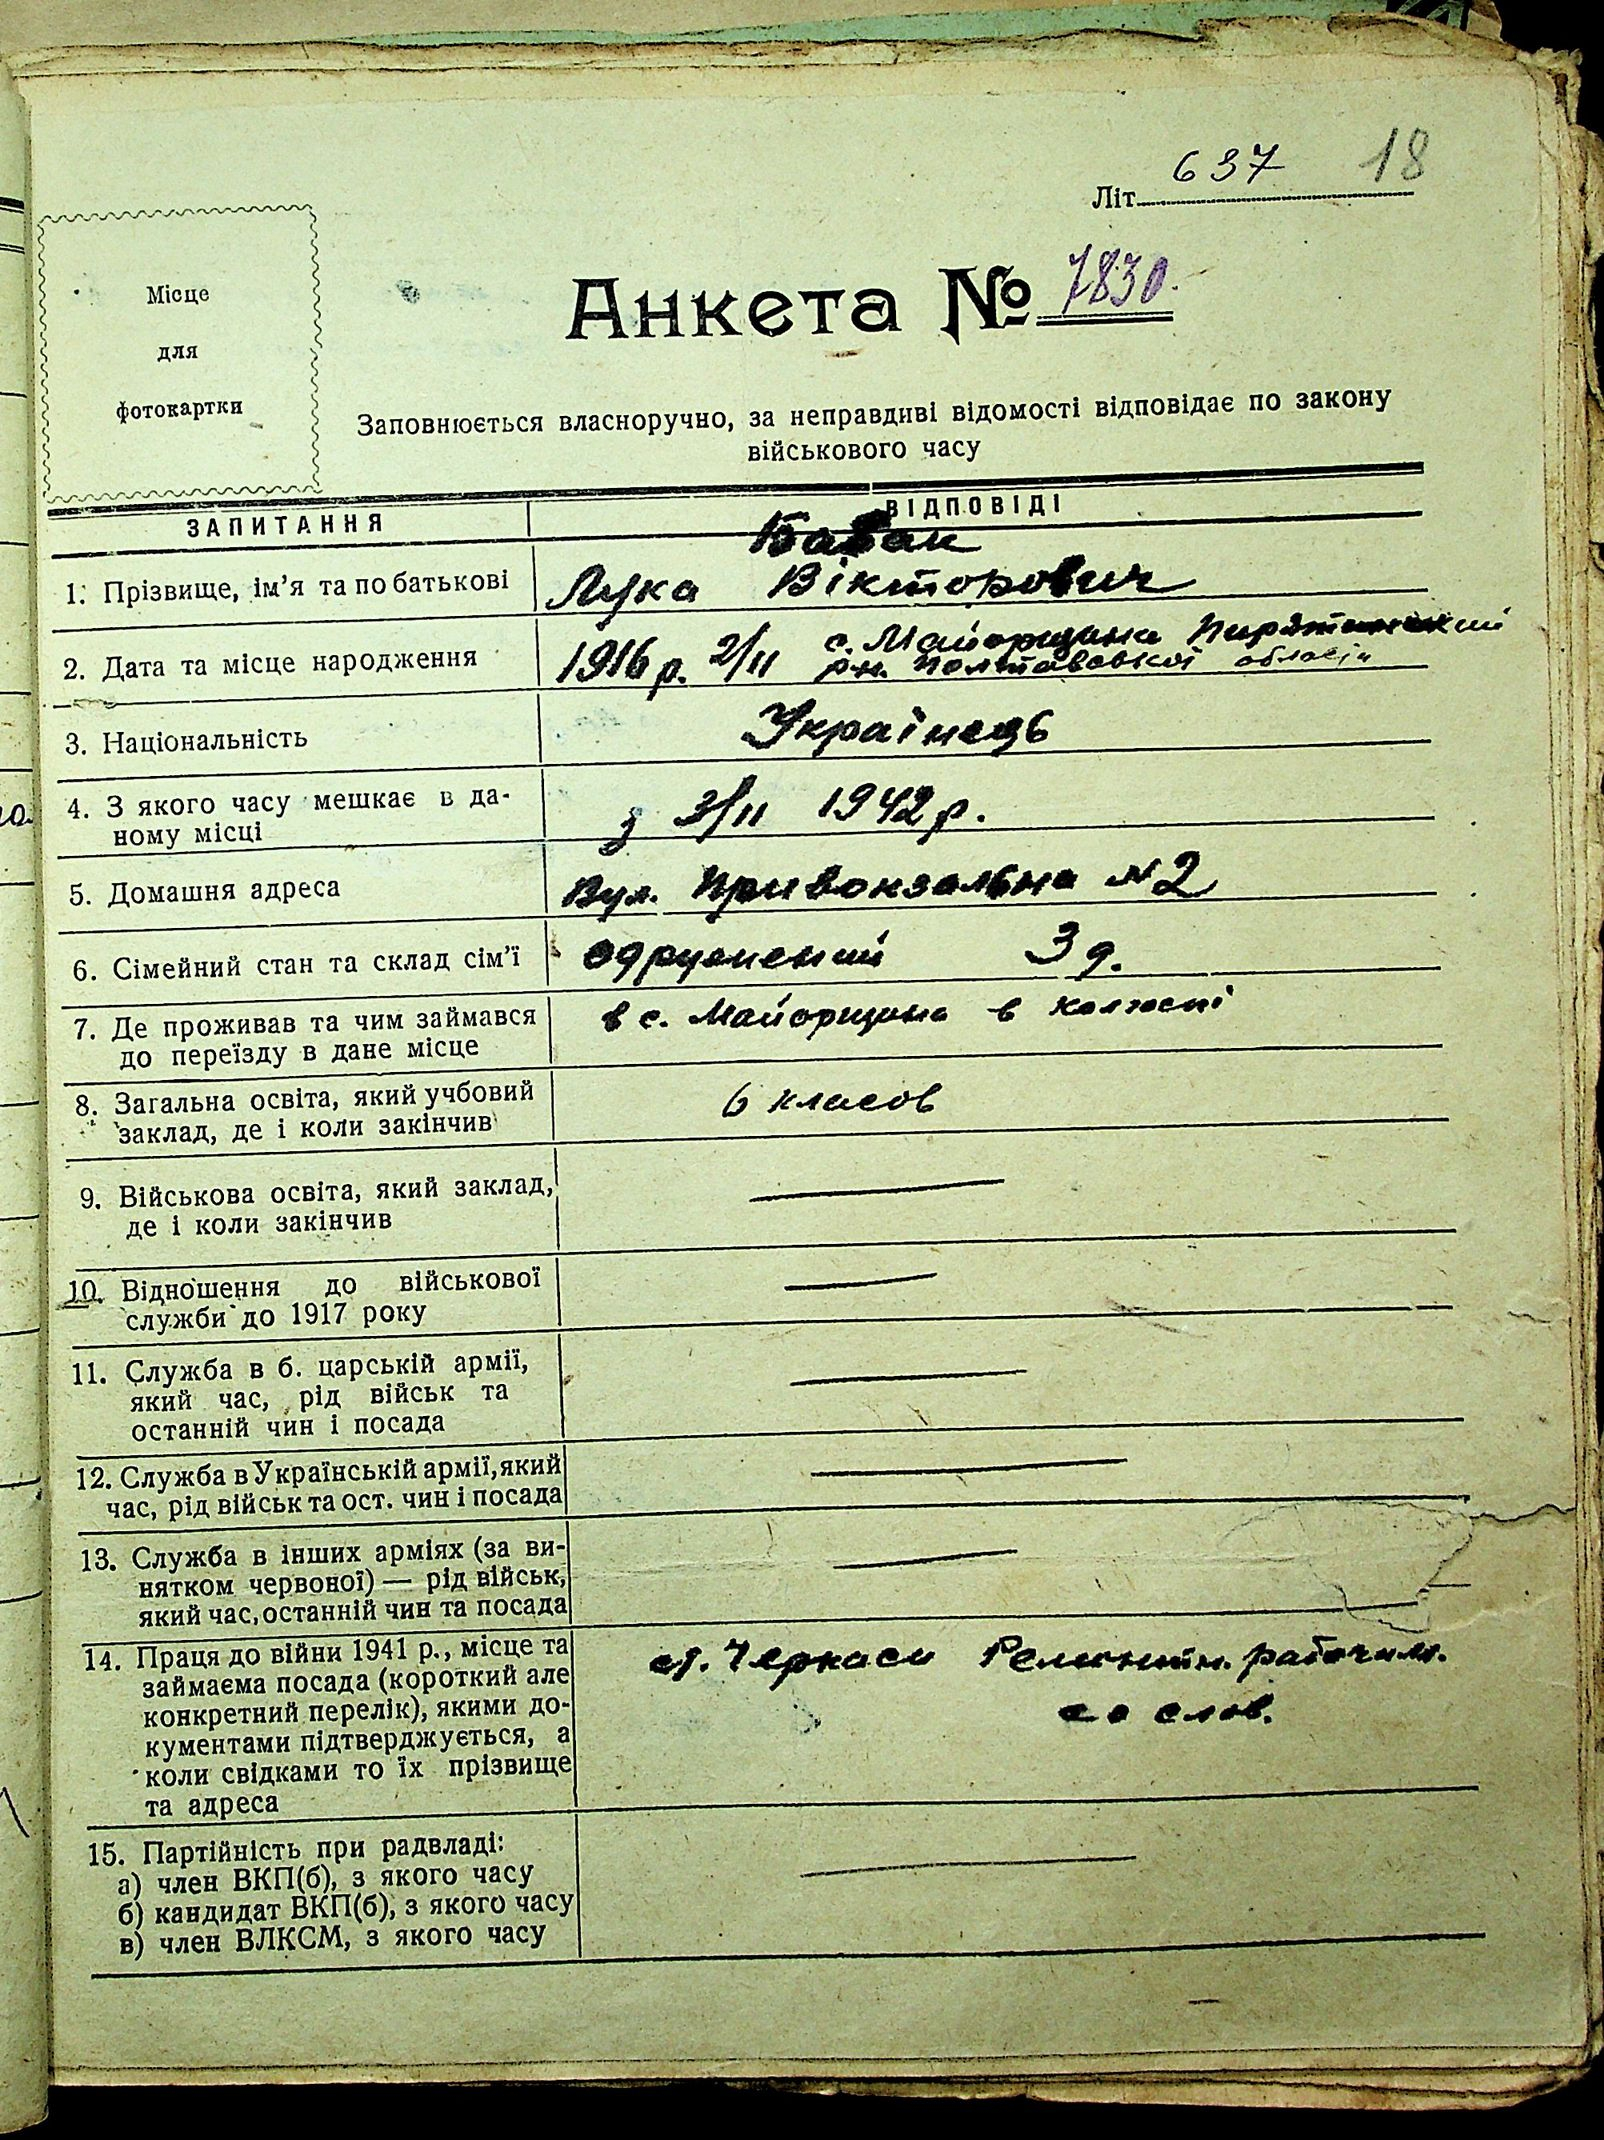 637 18
Літ
Місце
для
фотокартки
Анкета № 7830.
Заповнюється власноручно, за неправдиві відомості відповідає по закону
військового часу
ЗАПИТАННЯ
ВІДПОВІДІ
1. Прізвище, ім'я та по батькові
Лука Вікторович
2. Дата та місце народження
1916 р. 2/II с. Майорщина Пирятинський
рн. Полтавської області
3. Національність
Українець
4. З якого часу мешкає в да-
ному місці
з 3/II 1942 р.
5. Домашня адреса
Вул. Привокзальна №2
6. Сімейний стан та склад сім'ї
одружений 3 д.
7. Де проживав та чим займався
до переїзду в дане місце
в с. Майорщина в колхоспі
8. Загальна освіта, який учбовий
заклад, де і коли закінчив
6 класов
9. Військова освіта, який заклад,
де і коли закінчив
10. Відношення до військової
служби до 1917 року
11. Служба в б. царській армії,
який час, рід військ та
останній чин і посада
12. Служба в Українській армії, який
час, рід військ та ост. чин і посада
13. Служба в інших арміях (за ви-
нятком червоної) — рід військ,
який час, останній чин та посада
14. Праця до війни 1941 р., місце та
займаєма посада (короткий але
конкретний перелік), якими до-
кументами підтверджується, а
коли свідками то їх прізвище
та адреса
ст. Черкаси Ремонтн. рабочим.
со слов.
15. Партійність при радвладі:
а) член ВКП(б), з якого часу
б) кандидат ВКП(б), з якого часу
в) член ВЛКСМ, з якого часу